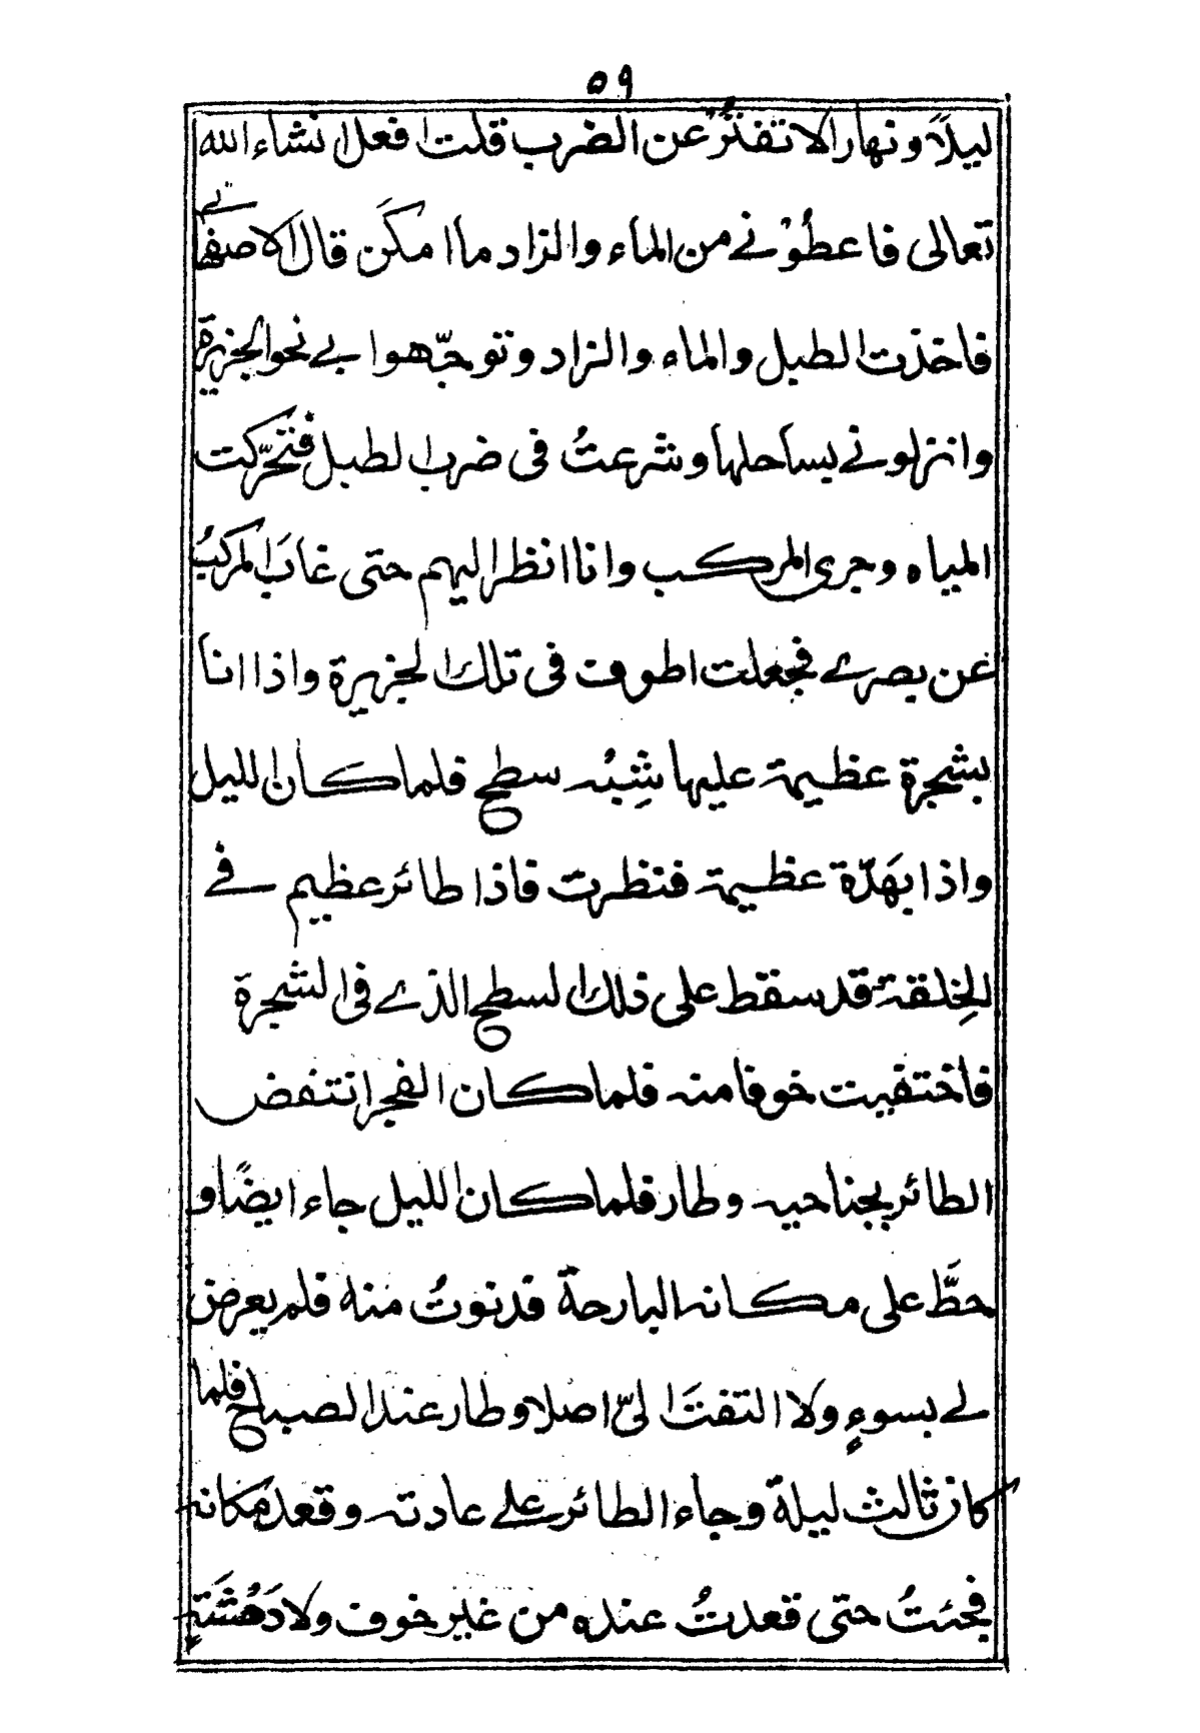 ٥٩
ليلاً ونهارا لا تفتُرُ عن الضرب قلت افعل انشاء الله
تعالى فاعطوْني من الماء والزاد ما امكَن قال الاصفهاني
فاخذت الطبل والماء والزاد وتوجّهوا بي نحو الجزيرة
وانزلوني بساحلها وشرعتُ في ضرب الطبل فتحرّكت
المياه وجرى المركب وانا انظر اليهم حتى غابَ المركبُ
عن بصري فجعلت اطوف في تلك الجزيرة واذا انا
بشجرة عظيمة عليها شِبْه سطح فلما كان الليل
واذا بهَدّة عظيمة فنظرت فاذا طائر عظيم في
الخِلقة قد سقط على ذلك السطح الذي في الشجرة
فاختفيت خوفا منه فلما كان الفجر انتفض
الطائر بجناحيه وطار فلما كان الليل جاء ايضًا و
حطَّ على مكانه البارحة فدنوتُ منه فلم يعرض
لي بسوءٍ ولا التفتَ اليّ اصلا وطار عند الصباح فلما
كان ثالث ليلة وجاء الطائر على عادته وقعد مكانه
فجئتُ حتى قعدتُ عنده من غير خوف ولا دَهْشَةٍ